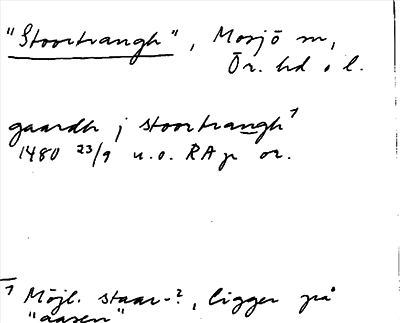 "Stoortrangh", Mosjö sn,
Ör. hd o l.
gaardh j stoortrangh¹
1480 23/9 u.o. RAp or.
¹ Möjl. staar-?, ligger på
"aasen"